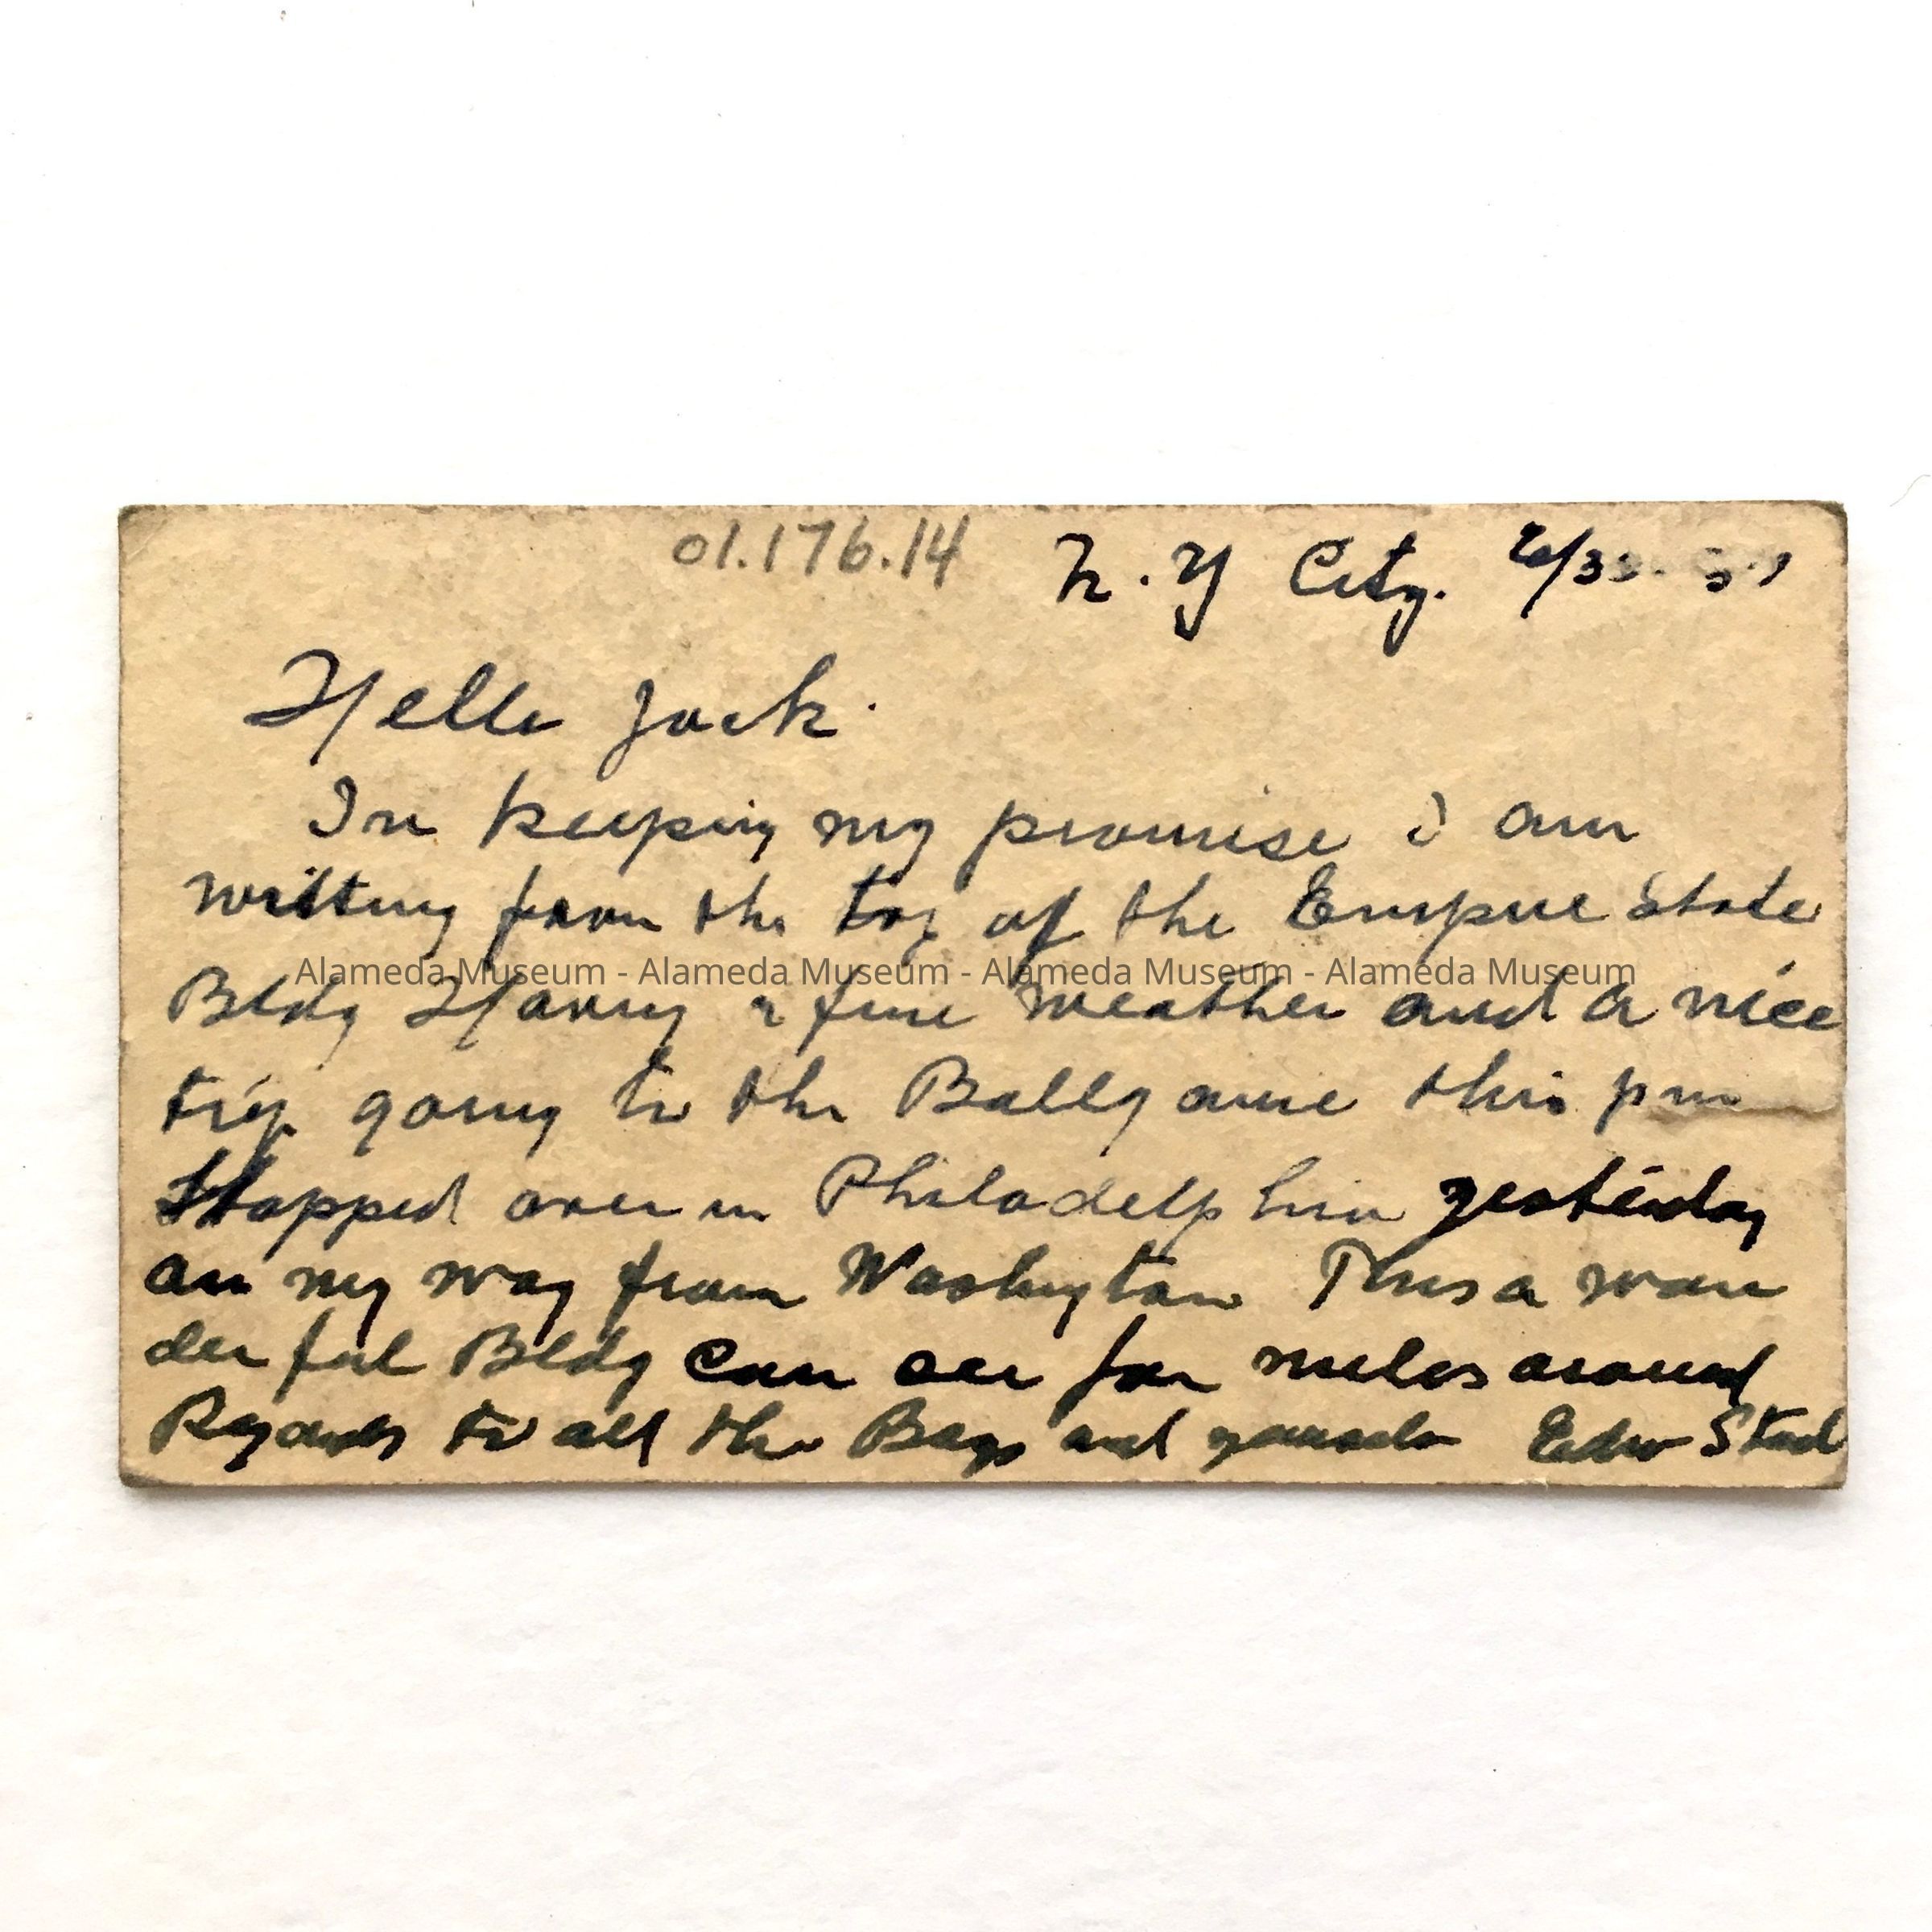 01.176.14
N.Y City.
Hello Jack.
In keeping my promise I am
writting from the top of the Empire State
Alameda Museum - Alameda Museum - Alameda Museum - Alameda Museum
Bldg Having a fine weather and a nice
trip going to the Ballgame this pm
Stopped over in Philadelphia yesterday
on my way from Washington This a won
derful Bldg can see for miles around
Regards to all the Boys and yourself Edw